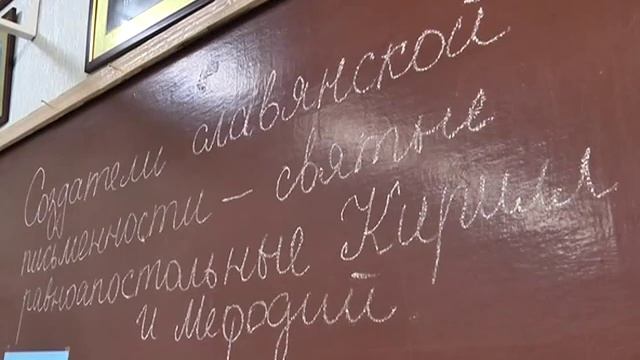 Создатели славянской
письменности – святые
равноапостольные Кирилл
и Мефодий